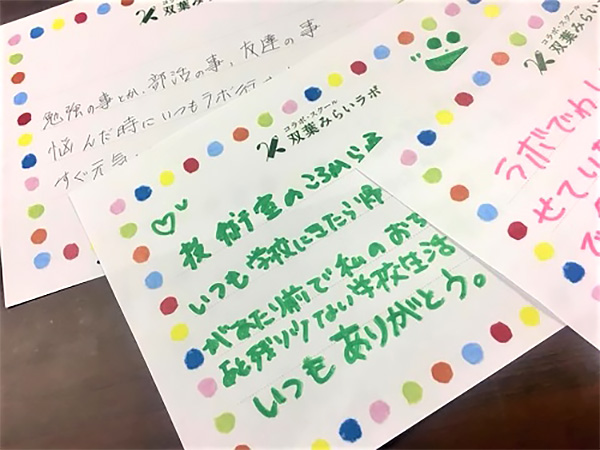 コラボ・スクール
双葉みらい
勉強の事とか、部活の事、友達の事
悩んだ時にいつもラボ行
すぐ元気
コラボ・スクール
双葉みらいラボ
技術室のころから
いつも学校にきたら
があたり前で私のお
あと残り少ない学校生活
いつもありがとう。
コラボ・スクール
双葉みらいラボ
ラボでわ
せてい
で